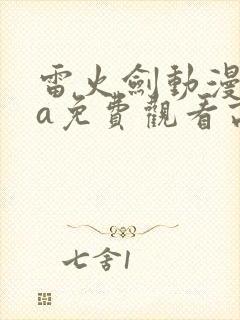 雷火劍動漫
a免費觀看高
七舍1